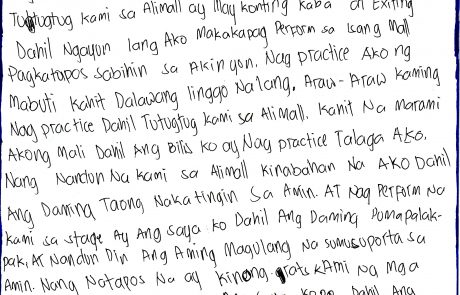 Tutugtog kami sa Alimall ay May konting kaba at Exiting
Dahil Ngayon lang Ako Makakapag Perform sa Isang Mall
Pagkatapos sabihin sa Akin yun. Nag practice Ako ng
Mabuti kahit Dalawang linggo Nalang, Araw-Araw kaming
Nag practice Dahil Tutugtug kami sa Alimall. Kahit Na Marami
Akong Mali Dahil Ang Bilis ko ay Nag practice Talaga Ako.
Nang Nandun Na kami sa Alimall Kinabahan Na AKO Dahil
Ang Daming Taong Nakatingin Sa Amin. AT Nag Perform Na
kami sa stage Ay Ang saya ko Dahil Ang Daming Pumapalak-
pak, At Nandun Din Ang Aming Magulang Na sumusuporta sa
Amin. Nang Natapos Na ay kinong-grats kAmi Ng Mga
Dahil Ang